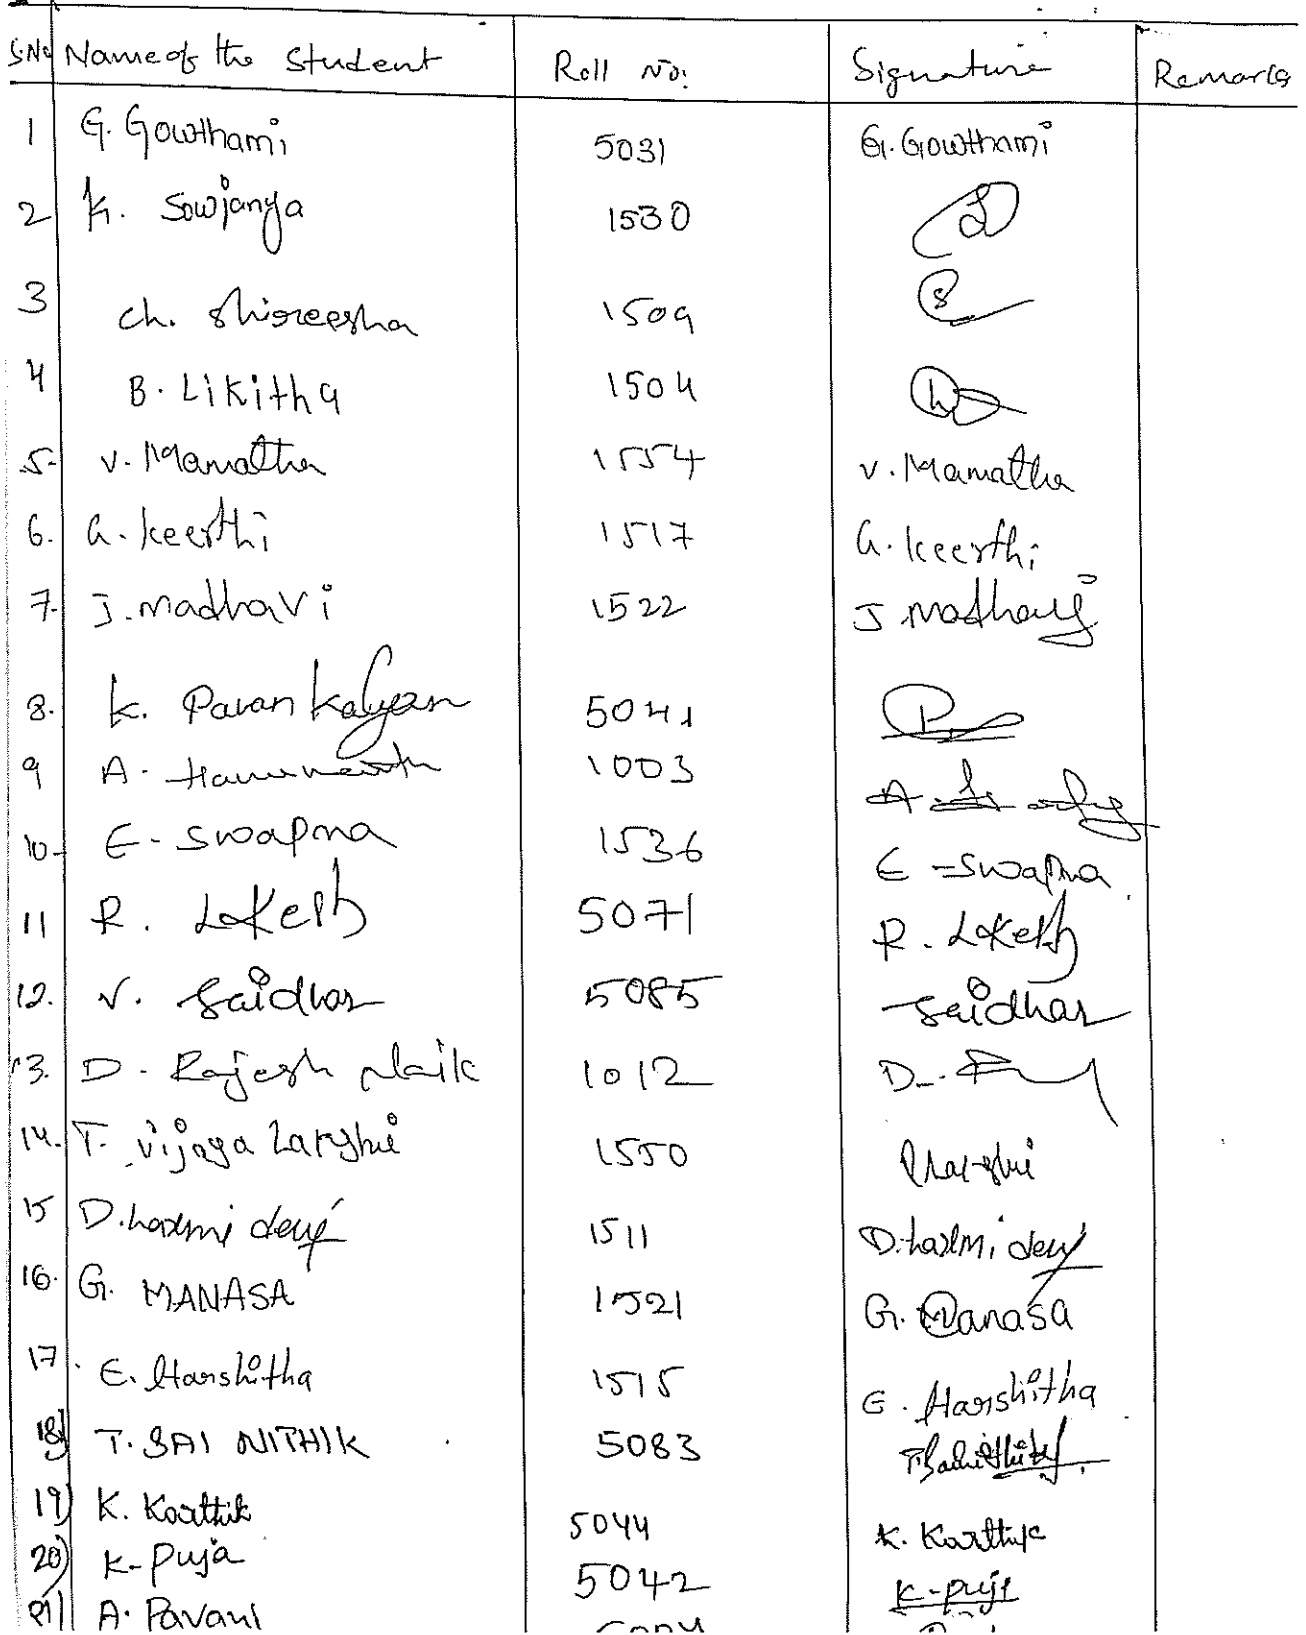 S.No Name of the Student Roll No: Signature Remarks
1 G. Gowthami 5031 G. Gowthami
2 K. Sowjanya 1530
3 ch. Shireesha 1509
4 B. Likitha 1504
5. V. Mamatha 1554 V. Mamatha
6. G. keerthi 1517 G. keerthi
7. J. madhavi 1522 J madhavi
8. K. Pavan Kalyan 5041
9 A. 1003 A
10. E. Swapna 1536 E Swapna
11 R. Lokesh 5071 R. Lokesh
12. V. Saidhar 5085 Saidhar
13. D. Rajesh Naik 1012 D.
14. T. Vijaya Lakshmi 1550
15 D. Laxmi devi 1511 D. Laxmi devi
16. G. MANASA 1521 G. Manasa
17. E. Harshitha 1515 E. Harshitha
18) T. SAI NITHIK 5083 T. Sai Nithik
19) K. Karthik 5044 K. Karthik
20) K. Puja 5042 K-puja
21) A. Pavani